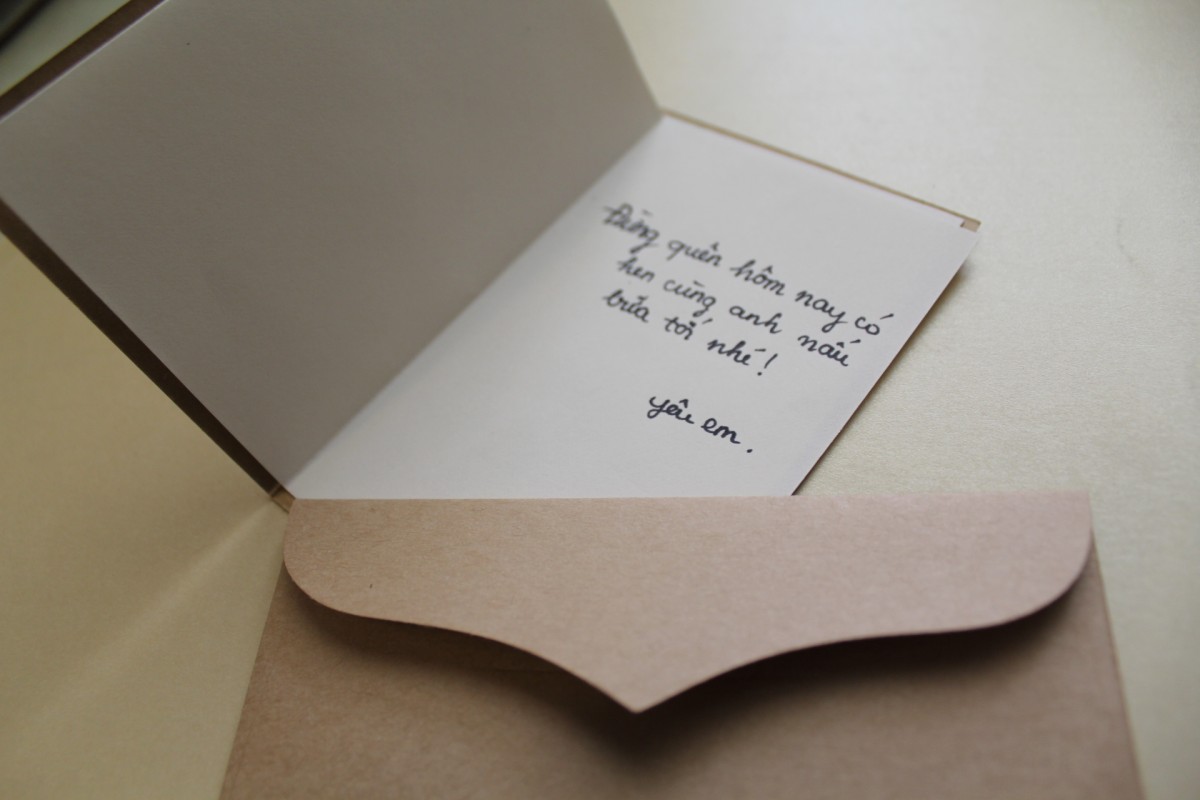 Đừng quên hôm nay có
hẹn cùng anh nấu
bữa tối nhé!
yêu em.